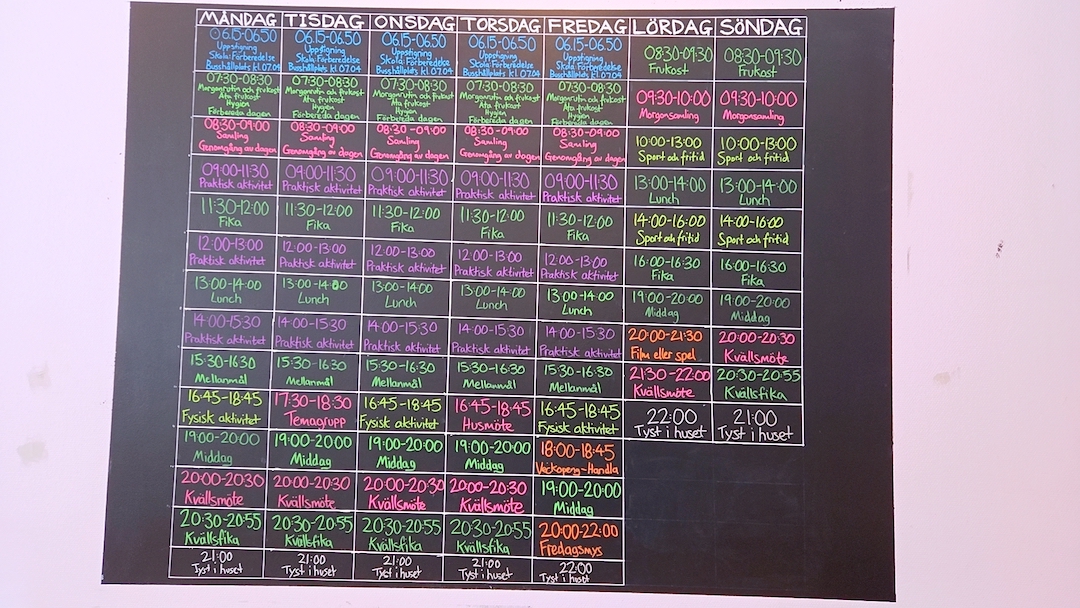 MÅNDAG TISDAG ONSDAG TORSDAG FREDAG LÖRDAG SÖNDAG
06.15-06.50 06.15-06.50 06.15-06.50 06.15-06.50 06.15-06.50 08:30-09:30 08:30-09:30
Uppstigning Uppstigning Uppstigning Uppstigning Uppstigning Frukost Frukost
Skola: Förberedelse Skola: Förberedelse Skola: Förberedelse Skola: Förberedelse Skola: Förberedelse
Busshållplats kl. 07.04 Busshållplats kl. 07.04 Busshållplats kl. 07.04 Busshållplats kl. 07.04 Busshållplats kl. 07.04
07:30-08:30 07:30-08:30 07:30-08:30 07:30-08:30 07:30-08:30 09:30-10:00 09:30-10:00
Morgonrutin och frukost Morgonrutin och frukost Morgonrutin och frukost Morgonrutin och frukost Morgonrutin och frukost Morgonsamling Morgonsamling
Äta frukost Äta frukost Äta frukost Äta frukost Äta frukost
Hygien Hygien Hygien Hygien Hygien
Förbereda dagen Förbereda dagen Förbereda dagen Förbereda dagen Förbereda dagen
08:30-09:00 08:30-09:00 08:30-09:00 08:30-09:00 08:30-09:00 10:00-13:00 10:00-13:00
Samling Samling Samling Samling Samling Sport och fritid Sport och fritid
Genomgång av dagen Genomgång av dagen Genomgång av dagen Genomgång av dagen Genomgång av dagen
09:00-11:30 09:00-11:30 09:00-11:30 09:00-11:30 09:00-11:30 13:00-14:00 13:00-14:00
Praktisk aktivitet Praktisk aktivitet Praktisk aktivitet Praktisk aktivitet Praktisk aktivitet Lunch Lunch
11:30-12:00 11:30-12:00 11:30-12:00 11:30-12:00 11:30-12:00 14:00-16:00 14:00-16:00
Fika Fika Fika Fika Fika Sport och fritid Sport och fritid
12:00-13:00 12:00-13:00 12:00-13:00 12:00-13:00 12:00-13:00 16:00-16:30 16:00-16:30
Praktisk aktivitet Praktisk aktivitet Praktisk aktivitet Praktisk aktivitet Praktisk aktivitet Fika Fika
13:00-14:00 13:00-14:00 13:00-14:00 13:00-14:00 13:00-14:00 19:00-20:00 19:00-20:00
Lunch Lunch Lunch Lunch Lunch Middag Middag
14:00-15:30 14:00-15:30 14:00-15:30 14:00-15:30 14:00-15:30 20:00-21:30 20:00-20:30
Praktisk aktivitet Praktisk aktivitet Praktisk aktivitet Praktisk aktivitet Praktisk aktivitet Film eller spel Kvällsmöte
15:30-16:30 15:30-16:30 15:30-16:30 15:30-16:30 15:30-16:30 21:30-22:00 20:30-20:55
Mellanmål Mellanmål Mellanmål Mellanmål Mellanmål Kvällsmöte Kvällsfika
16:45-18:45 17:30-18:30 16:45-18:45 16:45-18:45 16:45-18:45 22:00 21:00
Fysisk aktivitet Temagrupp Fysisk aktivitet Husmöte Fysisk aktivitet Tyst i huset Tyst i huset
19:00-20:00 19:00-20:00 19:00-20:00 19:00-20:00 18:00-18:45
Middag Middag Middag Middag Veckopeng-Handla
20:00-20:30 20:00-20:30 20:00-20:30 20:00-20:30 19:00-20:00
Kvällsmöte Kvällsmöte Kvällsmöte Kvällsmöte Middag
20:30-20:55 20:30-20:55 20:30-20:55 20:30-20:55 20:00-22:00
Kvällsfika Kvällsfika Kvällsfika Kvällsfika Fredagsmys
21:00 21:00 21:00 21:00 22:00
Tyst i huset Tyst i huset Tyst i huset Tyst i huset Tyst i huset